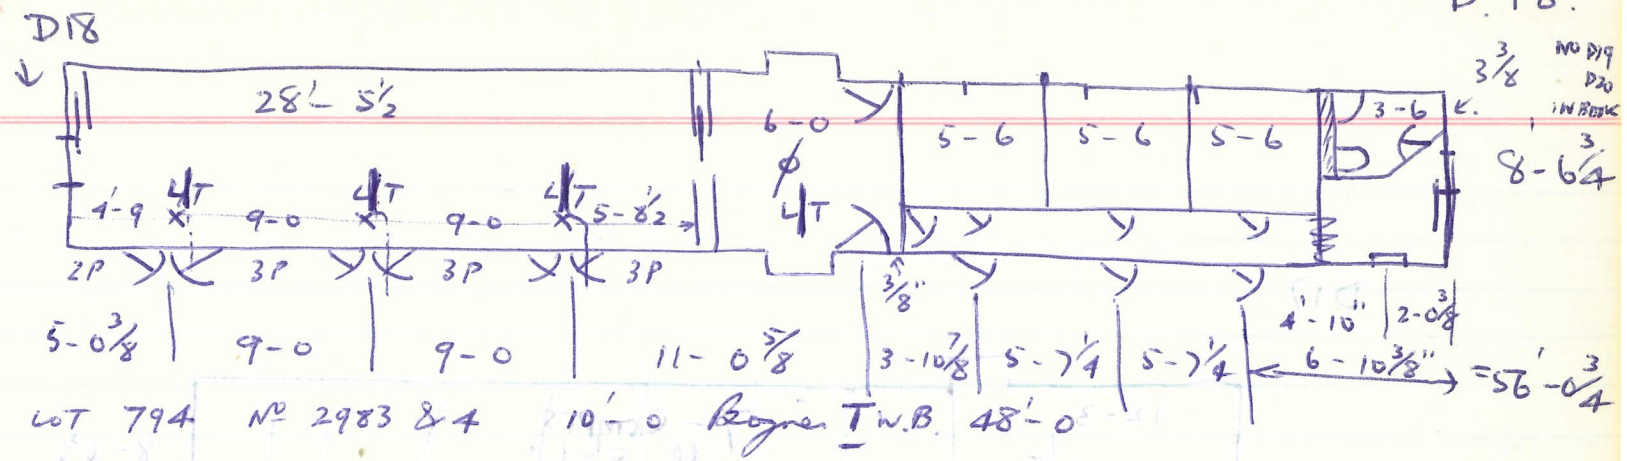 D. 18.
D18
3 3/8 NO D19
D20
IN BOOK
28'- 5 1/2
6-0
5-6 5-6 5-6
3-6
8'-6 3/4
4T 4T 4T 4T
4'-9 9-0 9-0 5-8 1/2
2P 3P 3P 3P
3/8"
5-0 3/8 9-0 9-0 11-0 5/8 3-10 7/8 5-7 1/4 5-7 1/4 4'-10" 2-0 3/8
6-10 3/8" =56'-0 3/4
LOT 794 No 2983 & 4 10'-0 Bogies T W.B. 48'-0